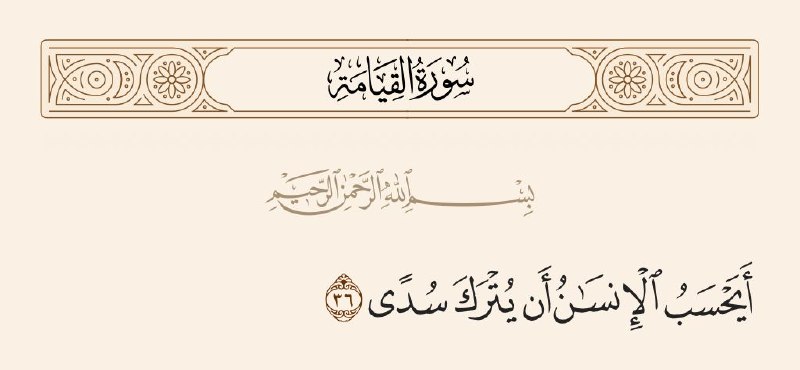 سُورَةُ القِيَامَةِ
بِسْمِ ٱللَّهِ ٱلرَّحْمَٰنِ ٱلرَّحِيمِ
أَيَحْسَبُ ٱلْإِنسَٰنُ أَن يُتْرَكَ سُدًى ٣٦